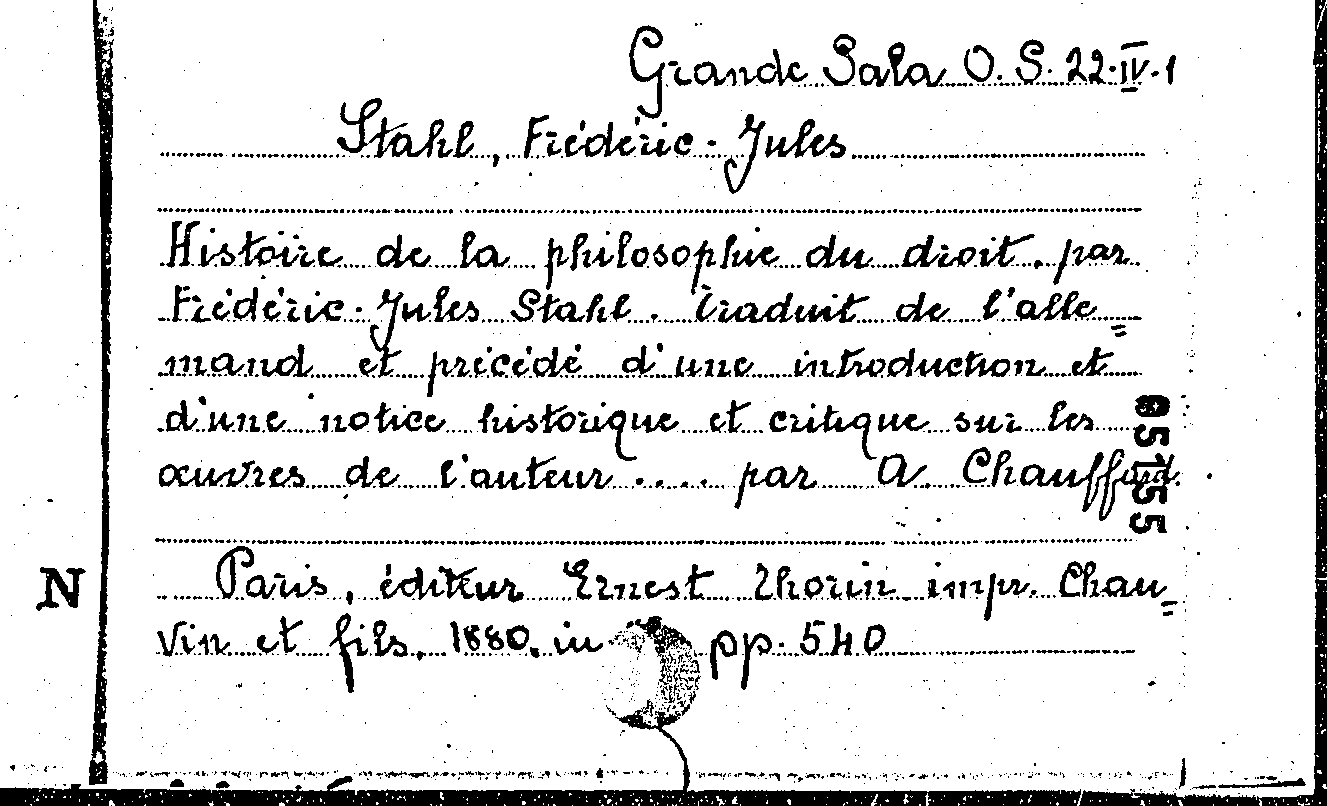 Grande Sala O. S. 22.IV.1
Stahl, Frédéric-Jules
Histoire de la philosophie du droit, par
Frédéric-Jules Stahl. Traduit de l'alle=
mand et précédé d'une introduction et
d'une notice historique et critique sur les
œuvres de l'auteur .... par A. Chauffard.
05155
N
Paris, éditeur Ernest Thorin impr. Chau=
vin et fils, 1880, in pp. 540